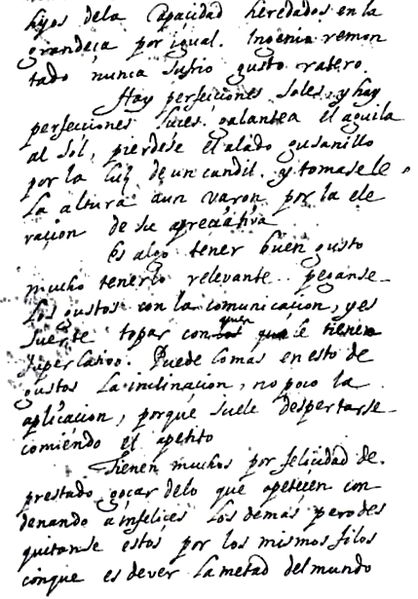 hijos dela Capacidad heredados en la
grandeça por igual. Ingenio remon
tado nunca sufrio gusto ratero.
Hay perfeciones soles, y hay
perfecciones luces. galantea el aguila
al sol, pierdese el alado gusanillo
por la luz de un candil. y tomasele
la altura aun varon por la ele
vacion de su apreciativa
Es algo tener buen gusto
mucho tenerlo relevante. peganse
los gustos con la comunicacion, y es
suerte topar con quien le tiene
superlativo. Puede lo mas en esto de
gustos la inclinacion, no poco la
aplicacion, porque suele despertarse
comiendo el apetito
Tienen muchos por felicidad de
prestado goçar delo que apeteçen con
denando a infelices los demas pero des
quitanse estos por los mismos filos
conque es de ver la metad del mundo